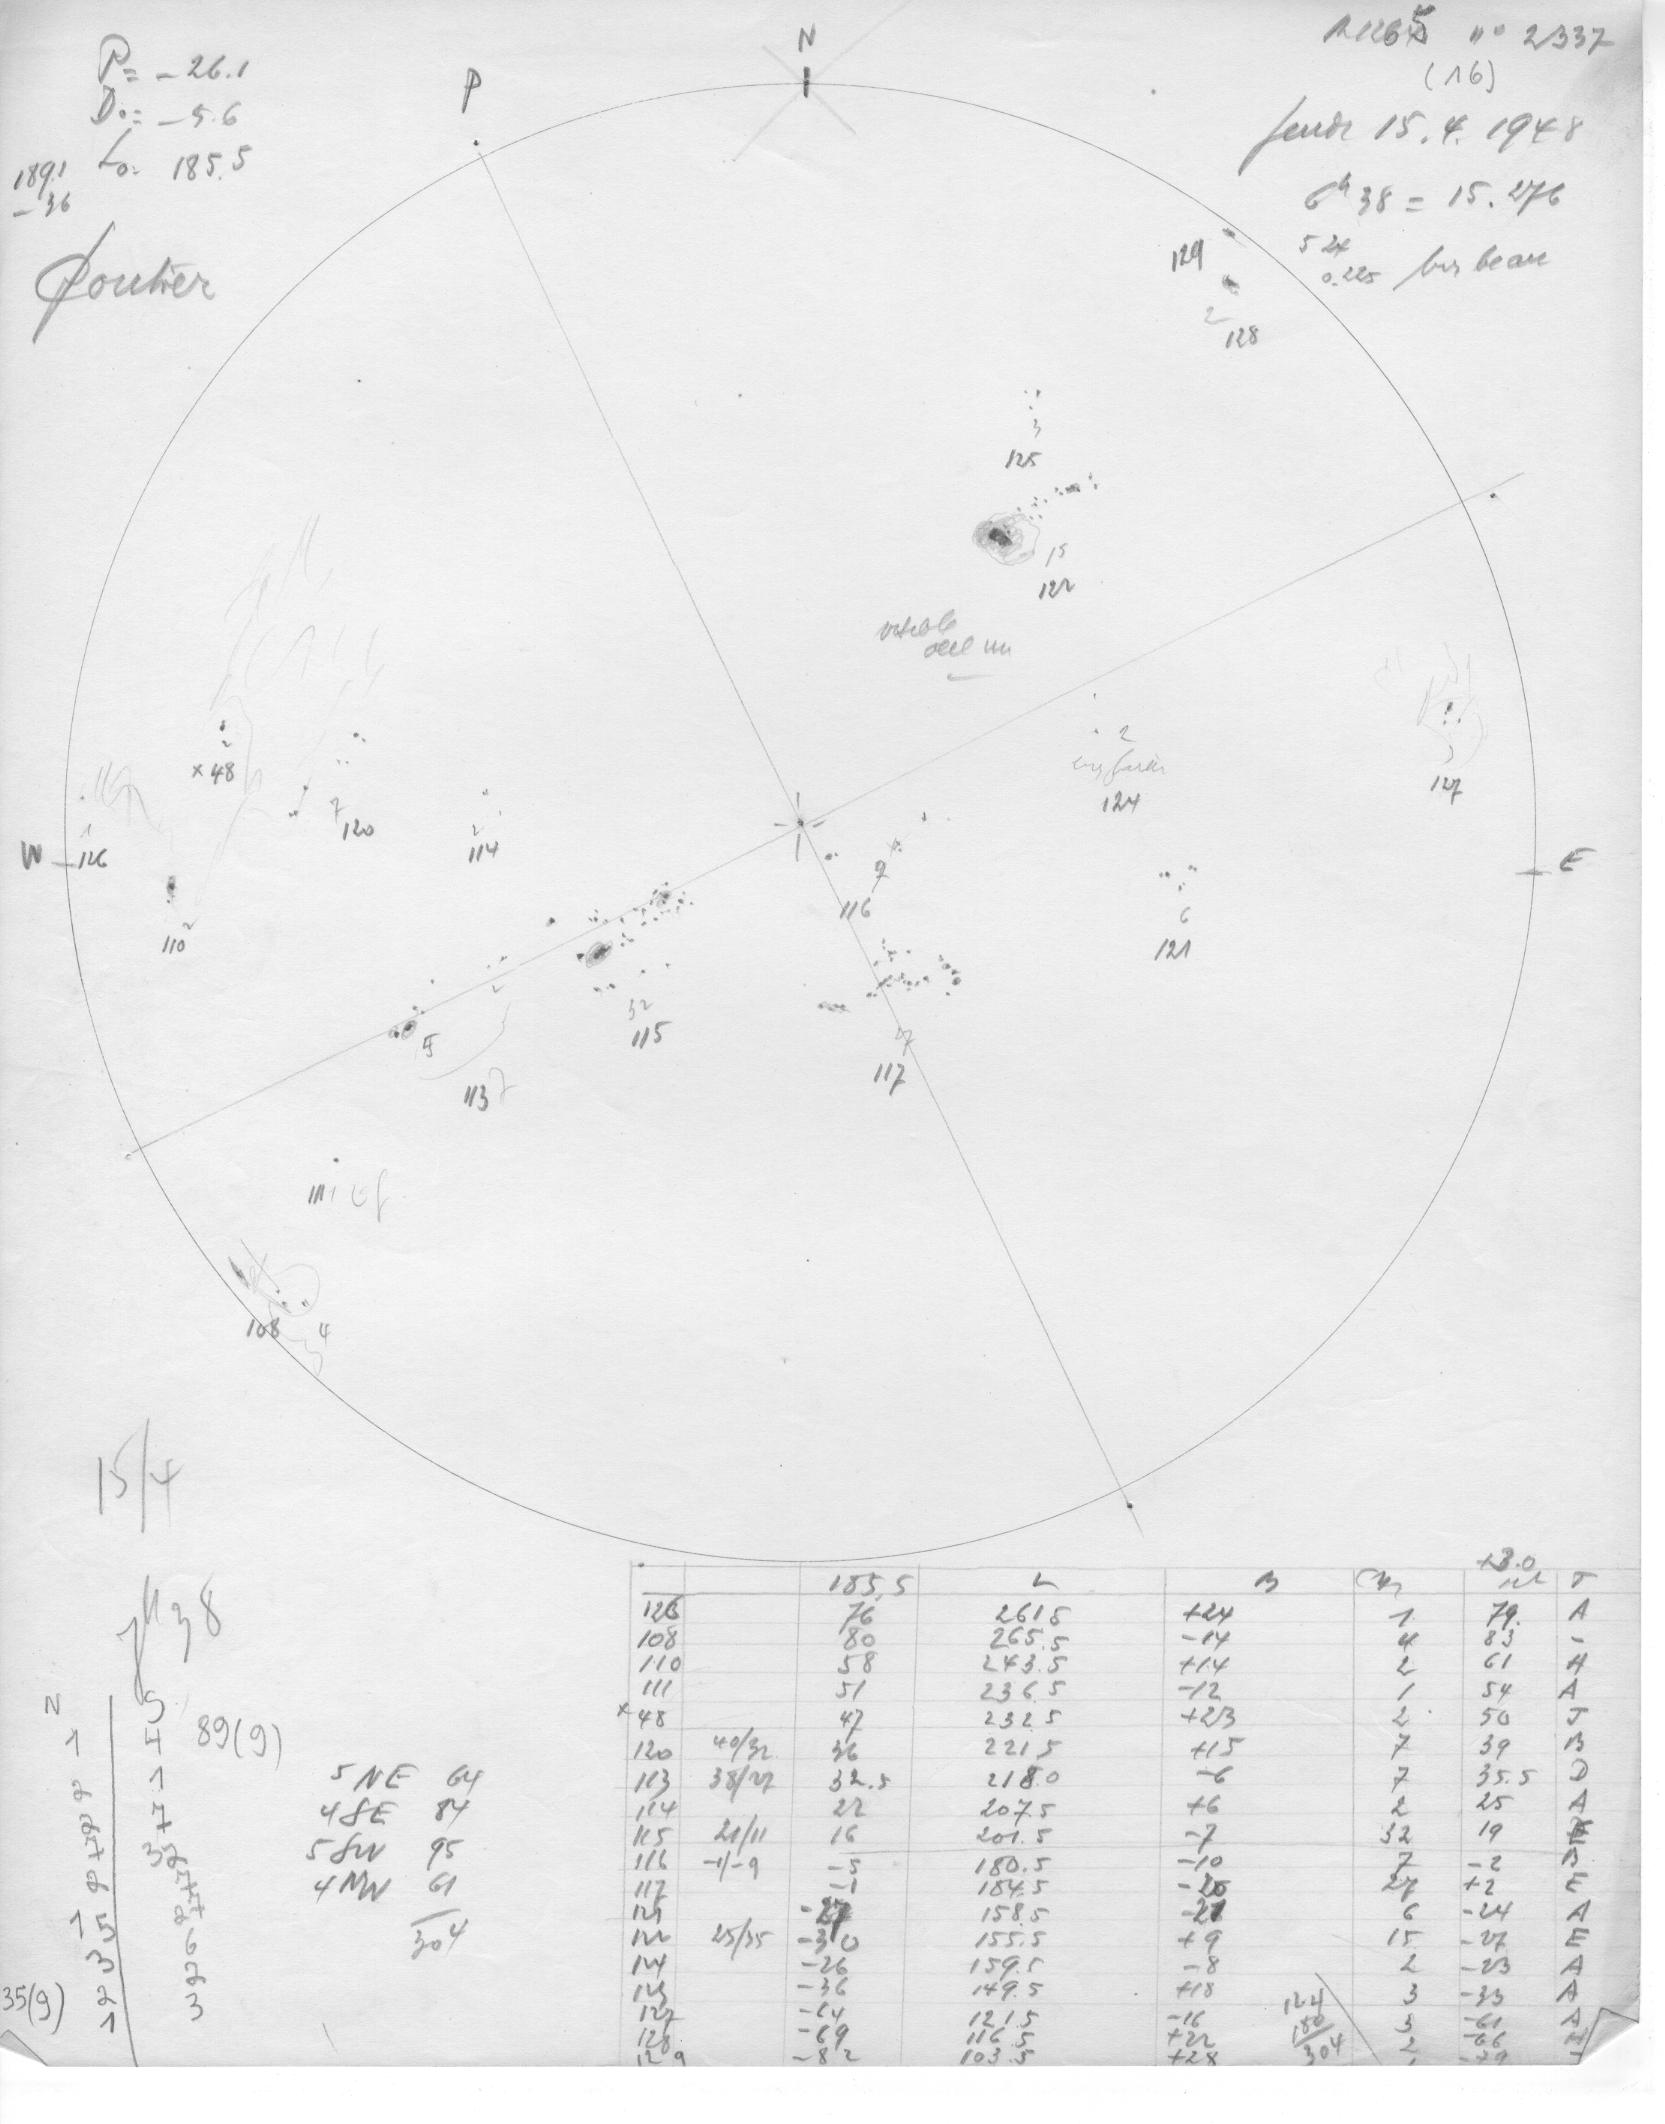 P= -26.1
D₀= -5.6
L₀= 185.5
189.1
-36
N
P
n° 2337
(16)
15.4.1948
6h 38 = 15.276
5 24
0.225
129
2
128
3
125
15
122
2
×48
7
120
2
114
2
124
127
W
126
E
110
2
9
116
6
121
32
115
5
2
113 7
17
117
111
108 4
15/4
7h38
N S
89(9)
35(9)
5 NE 64
4 SE 84
5 SW 95
4 NW 61
304
+3.0
185,5 L B T
126 76 261.5 +24 1 79. A
108 80 265.5 -14 4 83 -
110 58 243.5 +14 2 61 H
111 51 236.5 -12 1 54 A
×48 47 232.5 +23 2 50 J
120 40/32 36 221.5 +15 7 39 B
113 38/27 32.5 218.0 -6 7 35.5 D
114 22 207.5 +6 2 25 A
115 21/11 16 201.5 -7 32 19
116 -1/-9 -5 180.5 -10 7 -2 B
117 -1 184.5 27 +2 E
121 -27 158.5 -21 6 -24 A
122 25/35 -30 155.5 +9 15 -27 E
124 -26 159.5 -8 2 -23 A
125 -36 149.5 +18 3 -33 A
127 -64 121.5 -16 3 -61 A
128 -69 116.5 +22 2 -66 H
129 -82 103.5 +28 1 -79 -
124
180
304